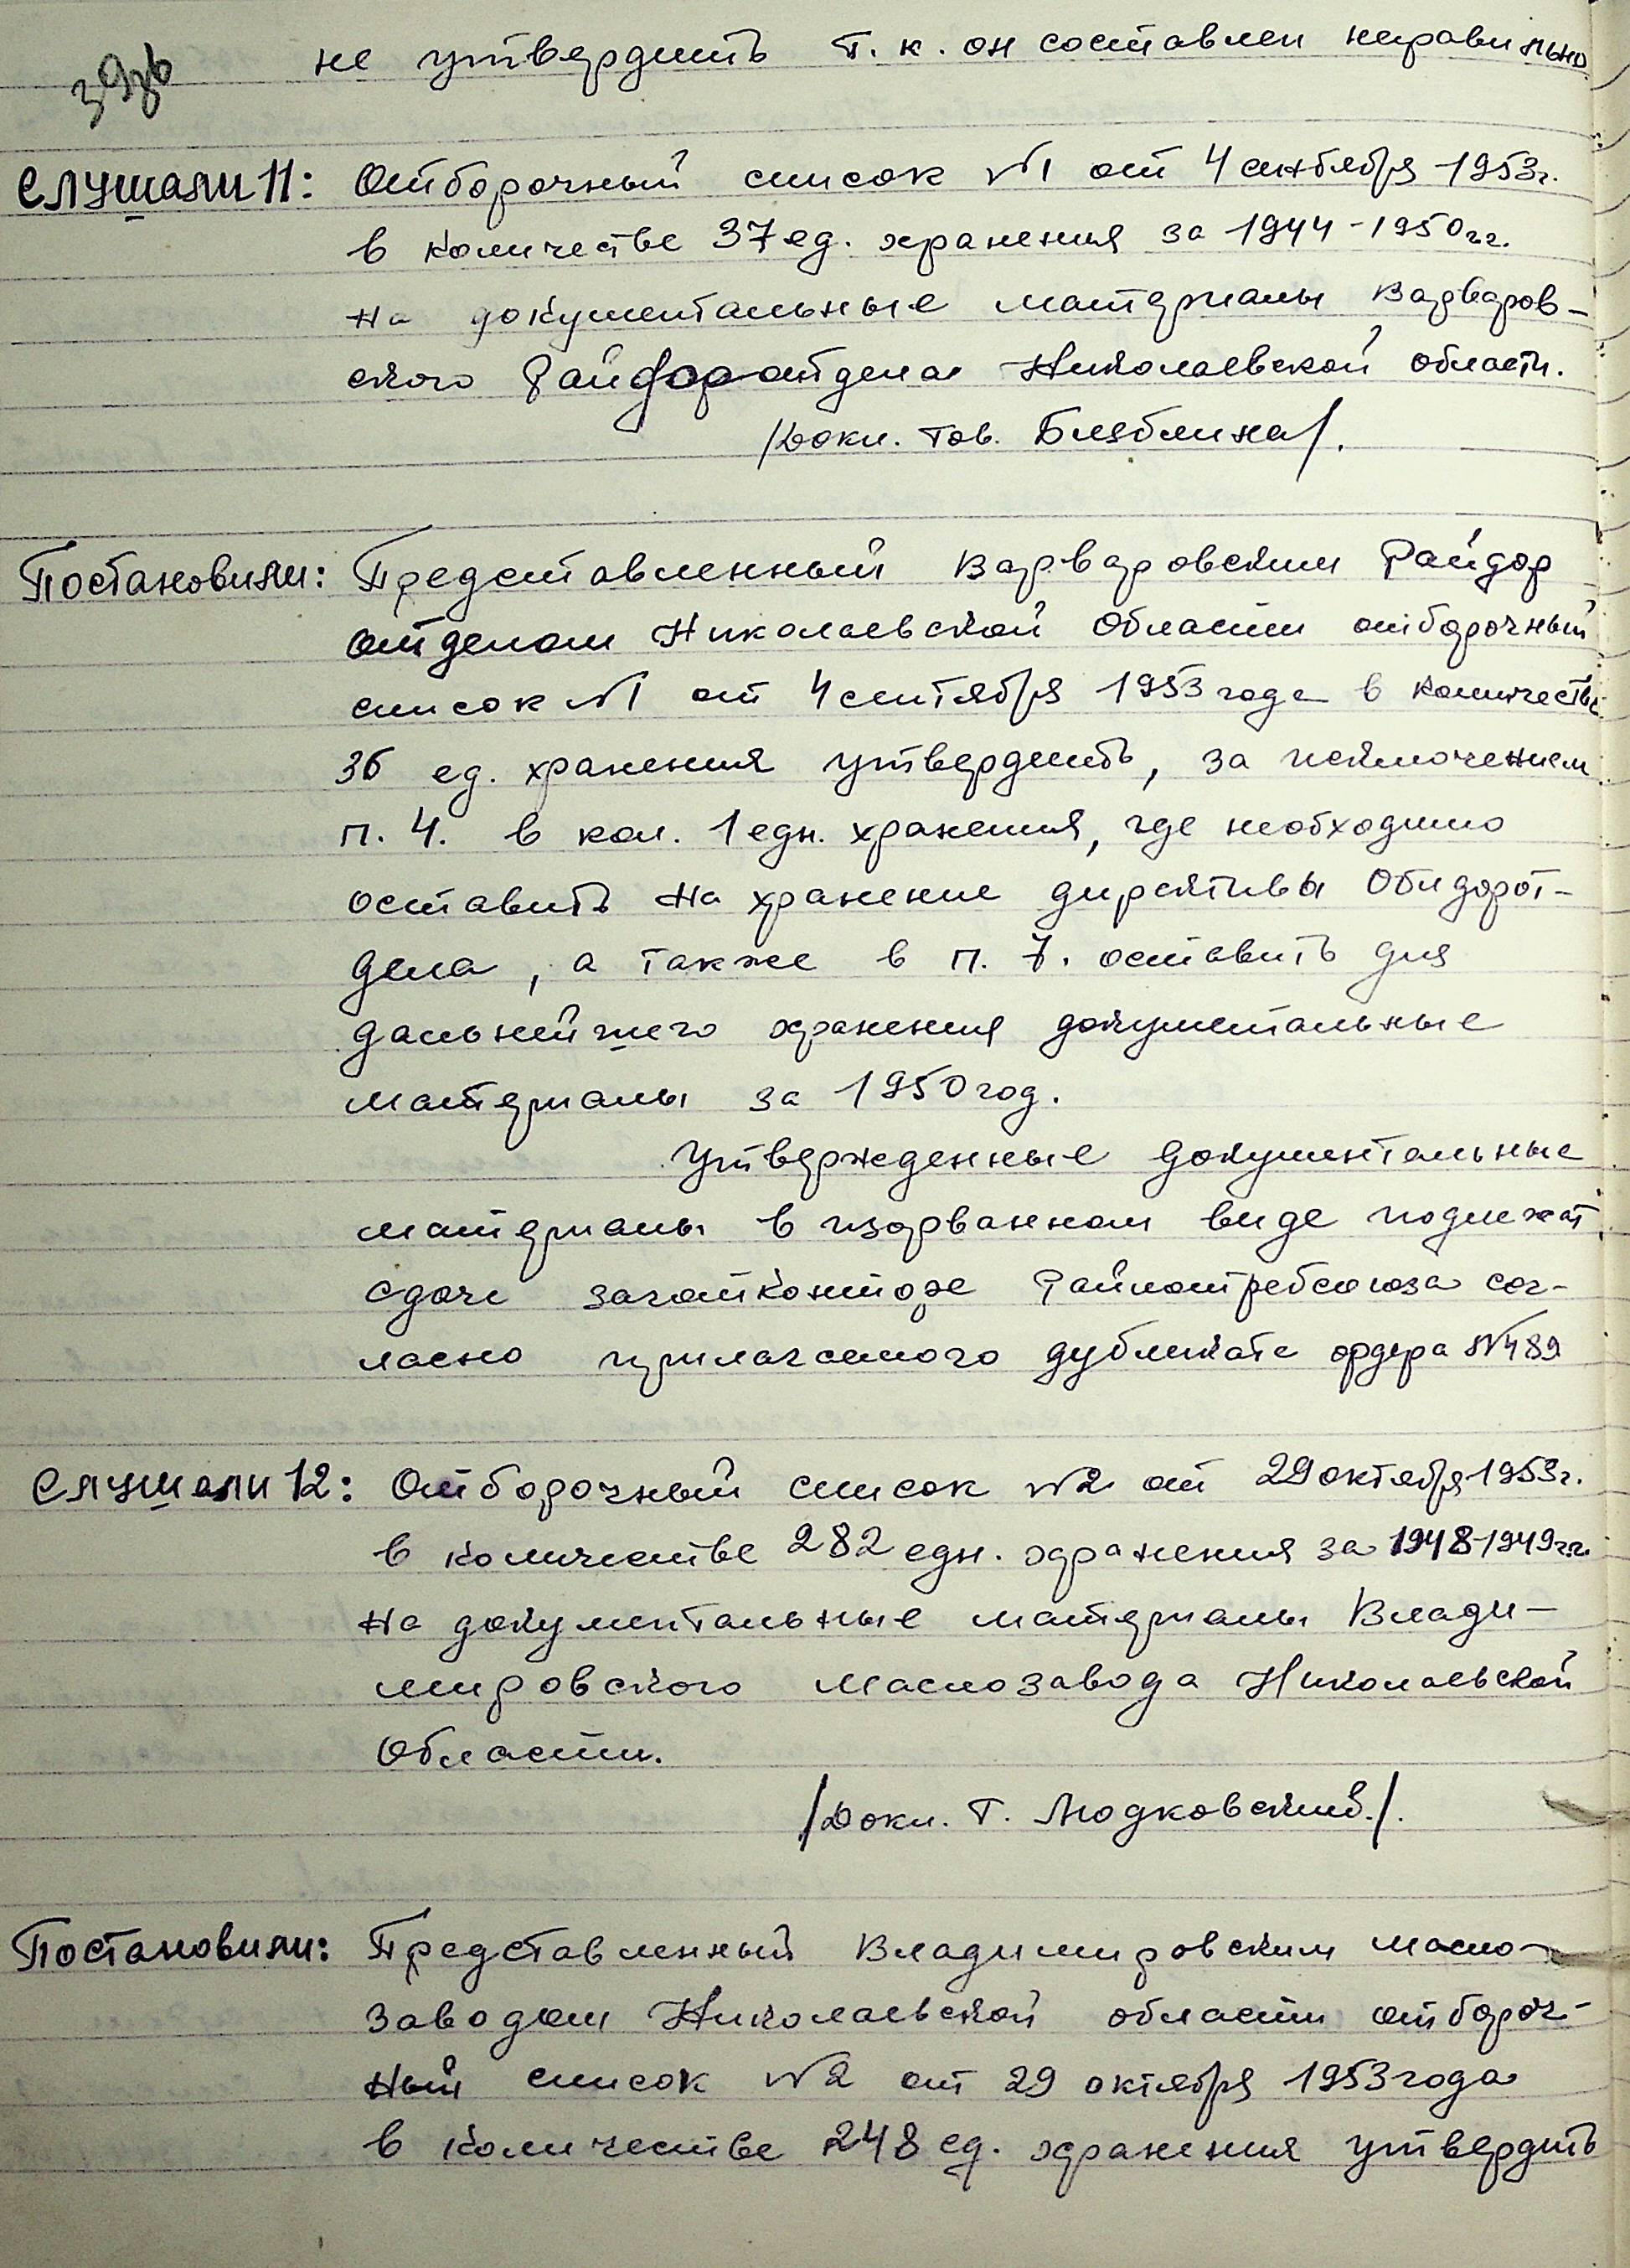 не утвердить т. к. он составлен неправильно
39об
Слушали 11: Отборочный список №1 от 4 сентября 1953г.
в количестве 37 ед. хранения за 1944-1950г.г.
на документальные материалы Варваров-
ского Райдоротдела Николаевской области.
/Докл. тов. /.
Постановили: Представленный Варваровским Райдор
отделом Николаевской области отборочный
список №1 от 4 сентября 1953 года в количестве
36 ед. хранения утвердить, за исключением
п. 4. в кол. 1 едн. хранения, где необходимо
оставить на хранение директивы Облдорот-
дела, а также в п. 7. оставить для
дальнейшего хранения документальные
материалы за 1950 год.
Утвержденные документальные
материалы в изорванном виде подлежат
сдаче заготконторе Райпотребсоюза сог-
ласно прилагаемого дубликата ордера №489
Слушали 12: Отборочный список №2 от 29 октября 1953г.
в количестве 282 едн. хранения за 1948-1949г.г.
на документальные материалы Влади-
мировского Маслозавода Николаевской
области.
/Докл. т. Людковский./.
Постановили: Представленный Владимировским масло-
заводом Николаевской области отбороч-
ный список №2 от 29 октября 1953 года
в количестве 248 ед. хранения утвердить